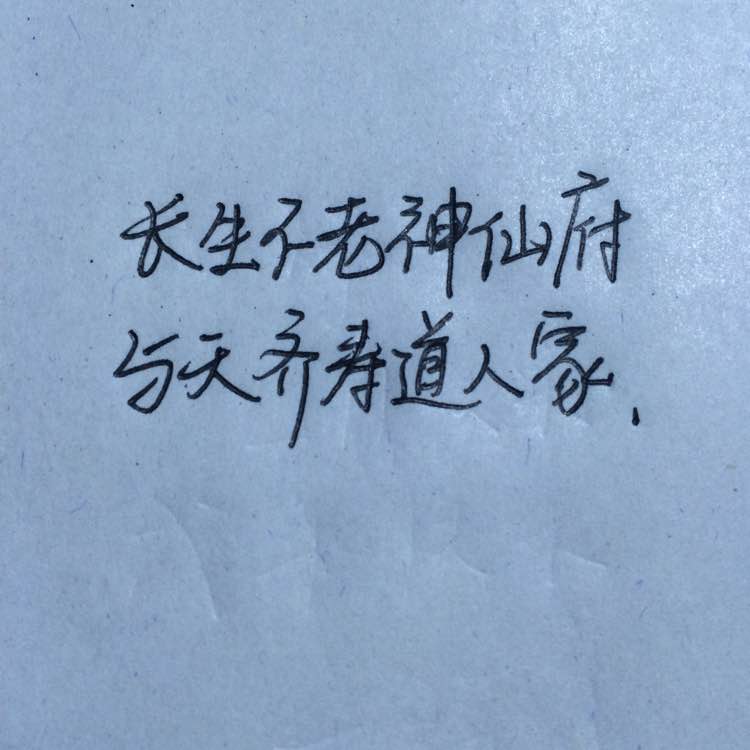 长生不老神仙府
与天齐寿道人家.